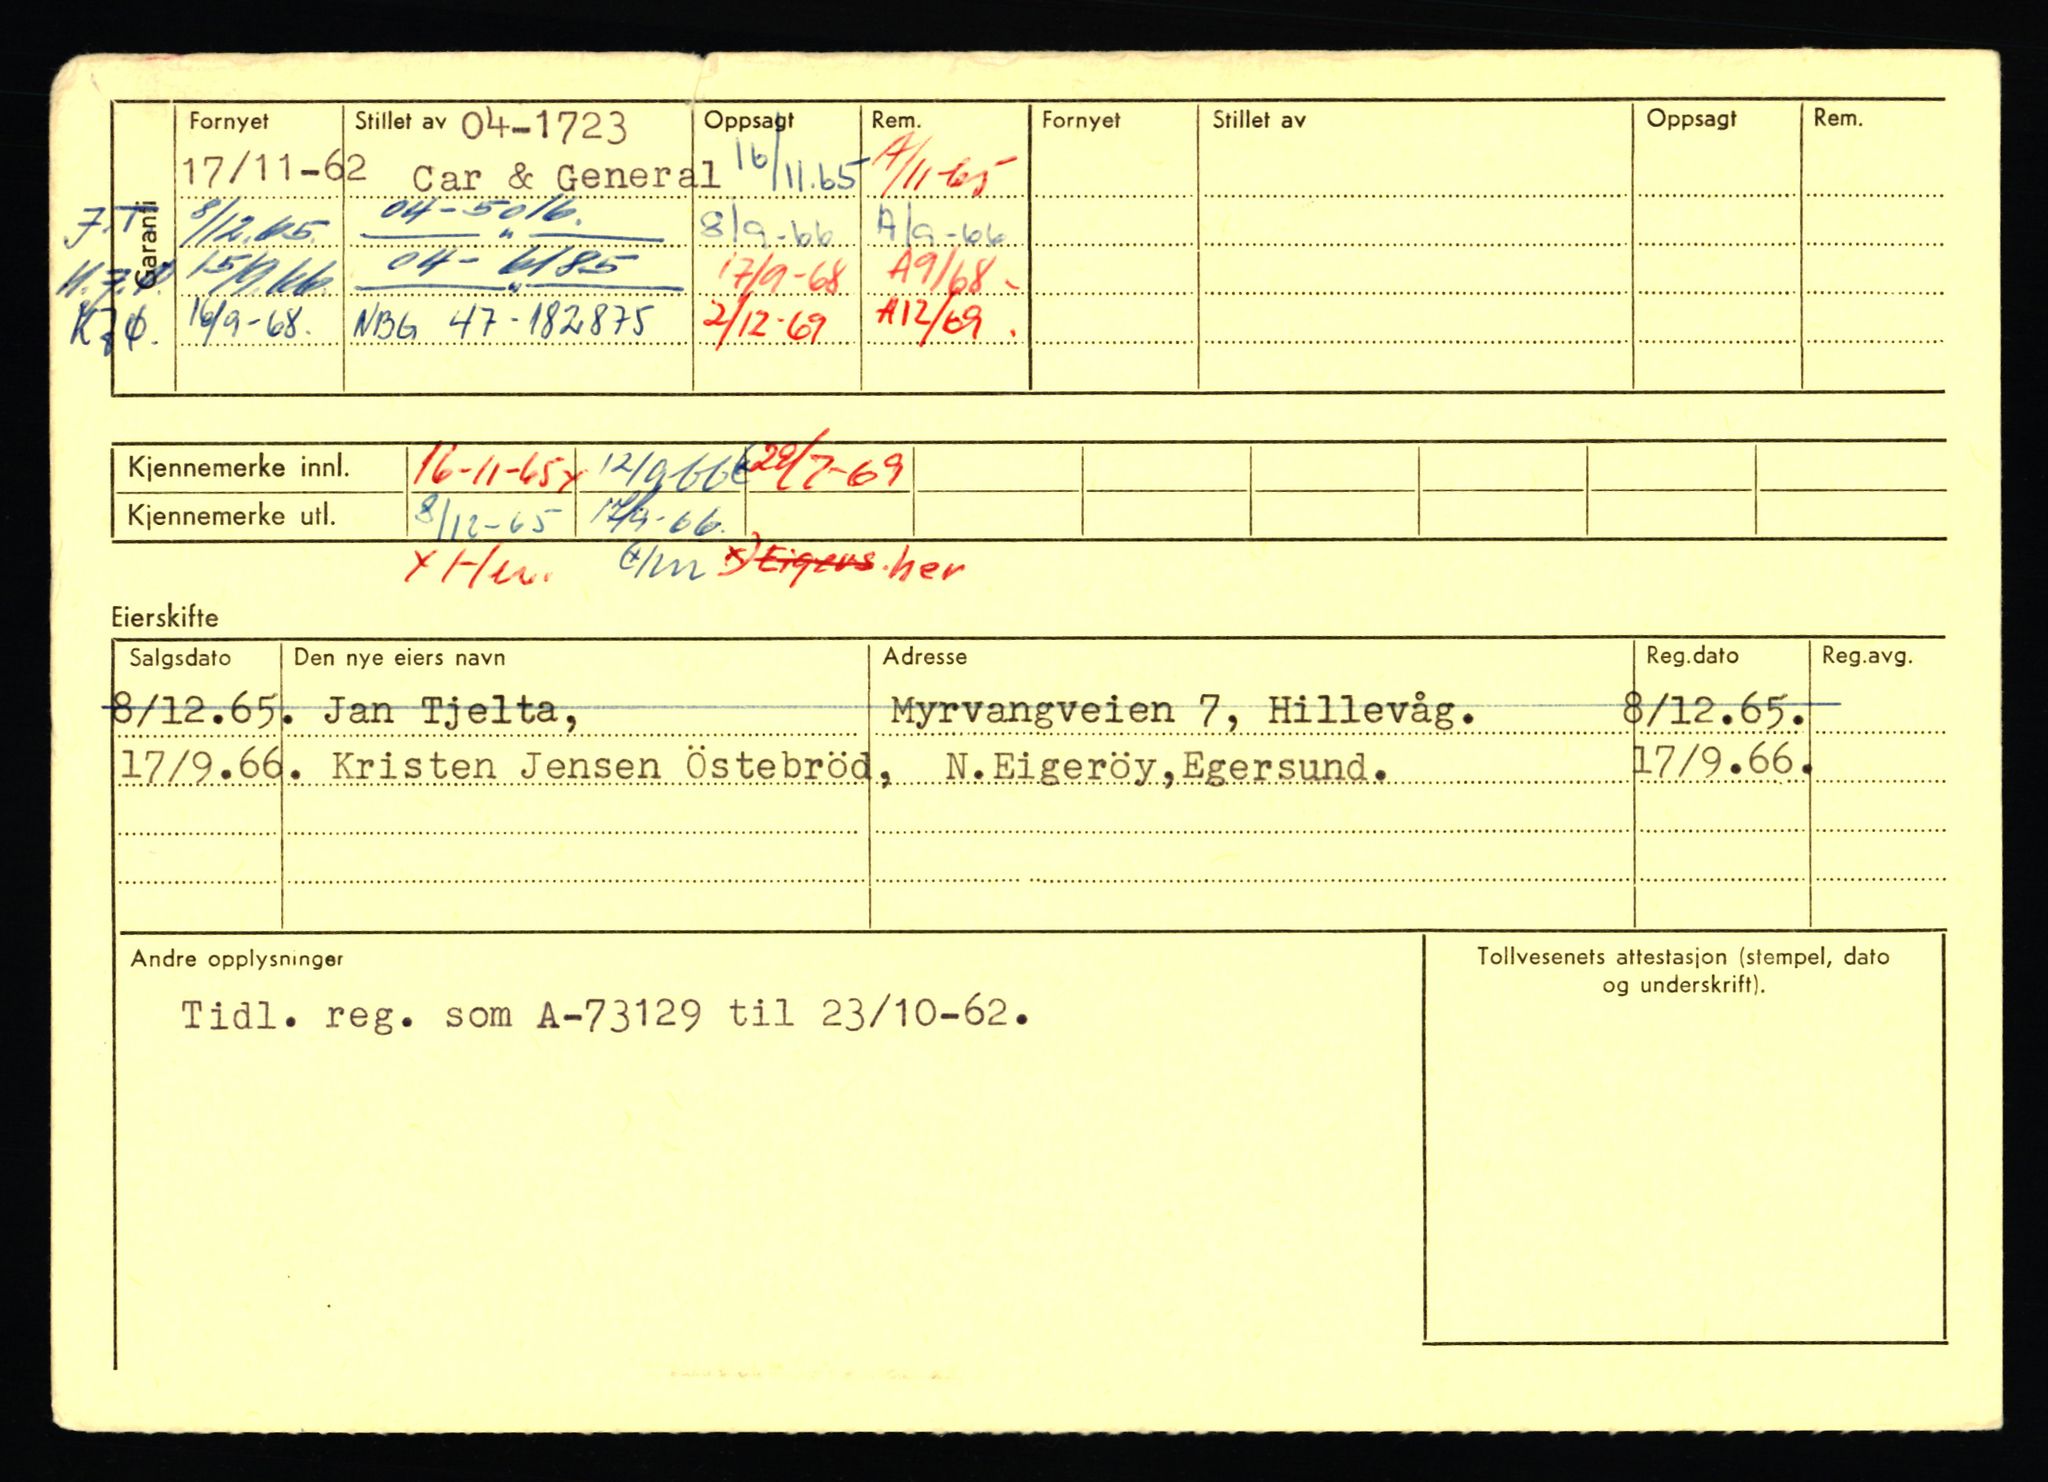 Fornyet Stillet av 04-1723 Oppsagt Rem. Fornyet Stillet av Oppsagt Rem.
Garanti
17/11-62 Car & General 16/11.65 A/11-65
J.T. 8/12.65. 04-5016. " 8/9-66 A/9-66
15/9.66. 04-6185 " 17/9-68 A9/68.
K.J.Ø. 16/9-68. NBG 47-182875 2/12-69 A12/69.
Kjennemerke innl. 16-11-65x 12/9-66 29/7-69
Kjennemerke utl. 8/12-65 17/9-66.
x) Eigers. her
Eierskifte
Salgsdato Den nye eiers navn Adresse Reg.dato Reg.avg.
8/12.65. Jan Tjelta, Myrvangveien 7, Hillevåg. 8/12.65.
17/9.66. Kristen Jensen Östebröd, N.Eigeröy,Egersund. 17/9.66.
Andre opplysninger
Tollvesenets attestasjon (stempel, dato
og underskrift).
Tidl. reg. som A-73129 til 23/10-62.